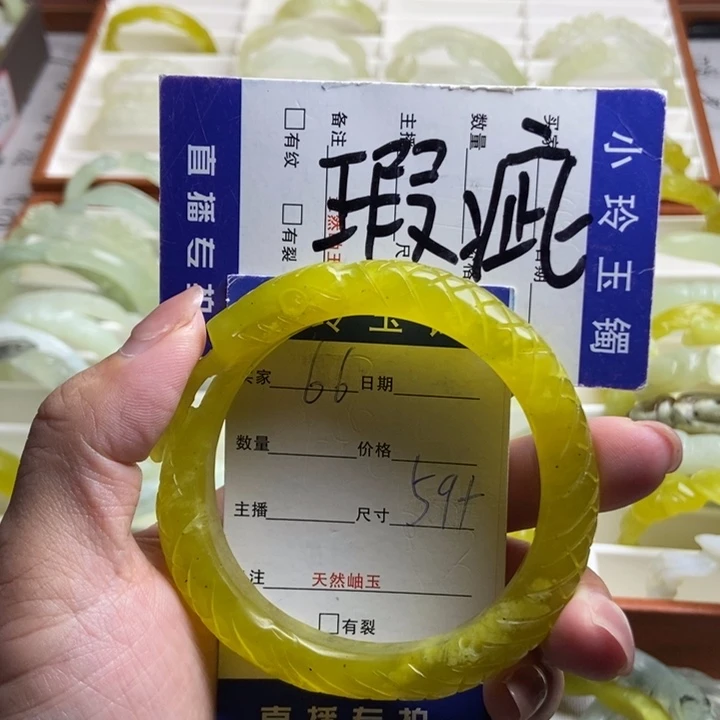 小玲玉镯
瑕疵
数量
主播 尺
备注 然岫玉
□有纹 □有裂
直播专拍
家 66 日期
数量 价格
主播 尺寸 59+
注 天然岫玉
□有裂
直播专拍